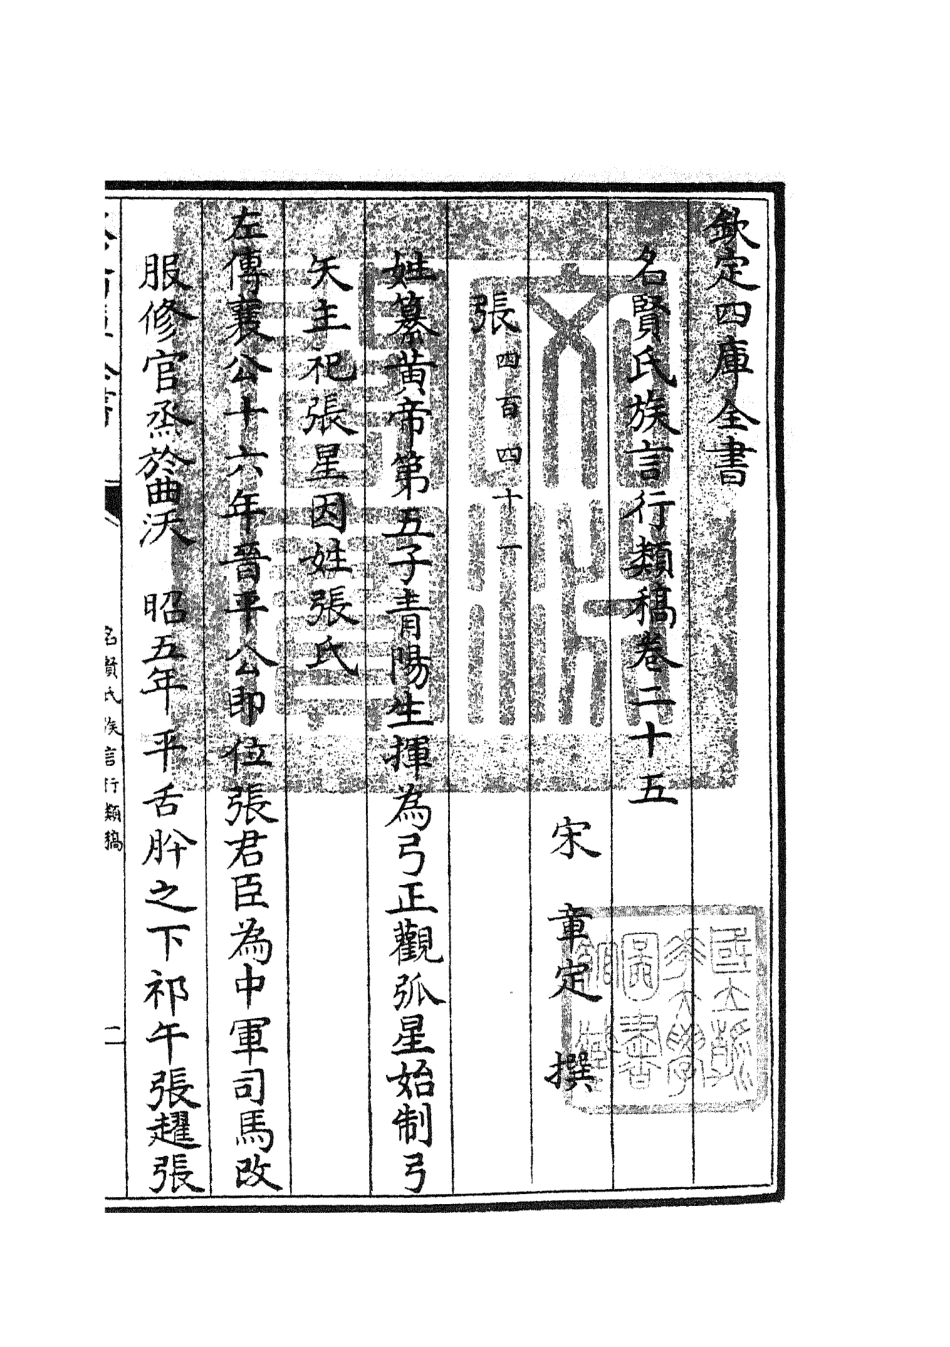 欽定四庫全書
名賢氏族言行類稿卷二十五
宋 章定 撰
張四百四十一
姓纂黃帝第五子青陽生揮為弓正觀弧星始制弓
矢主祀張星因姓張氏
左傳襄公十六年晉平公即位張君臣為中軍司馬改
服修官烝於曲沃 昭五年平舌肸之下祁午張趯張
名賢氏族言行類稿